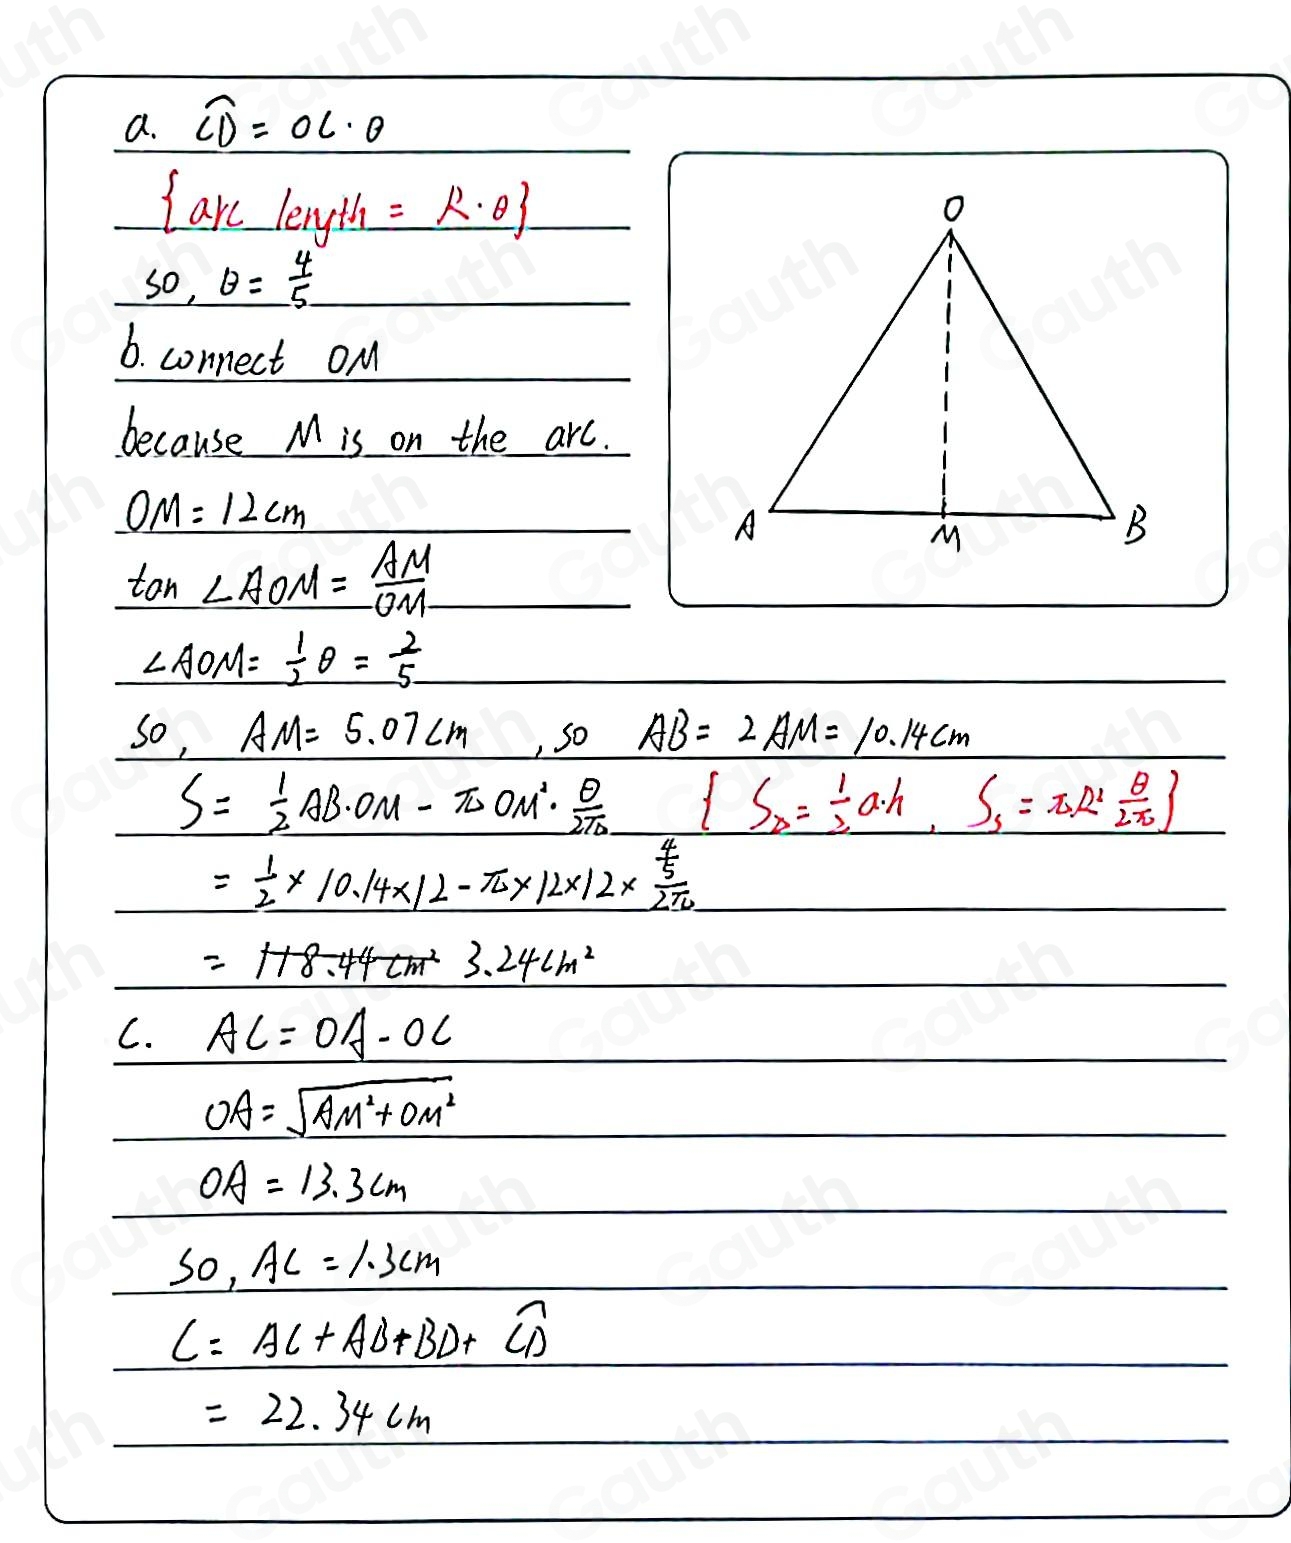 a. ⌢CD = OC · θ
{arc length = R · θ}
so, θ = 4/5
b. connect OM
because M is on the arc.
OM = 12cm
tan ∠AOM = AM/OM
∠AOM = 1/2 θ = 2/5
so, AM = 5.07cm , so AB = 2AM = 10.14cm
S = 1/2 AB·OM - π OM²· θ/2π { S△ = 1/2 a·h , Ss = πR² θ/2π }
= 1/2 × 10.14×12 - π×12×12× (4/5)/2π
= 118.44 cm² 3.24cm²
C. AC = OA - OC
OA = √(AM² + OM²)
OA = 13.3cm
so, AC = 1.3cm
C = AC + AB + BD + ⌢CD
= 22.34cm
O
A
M
B